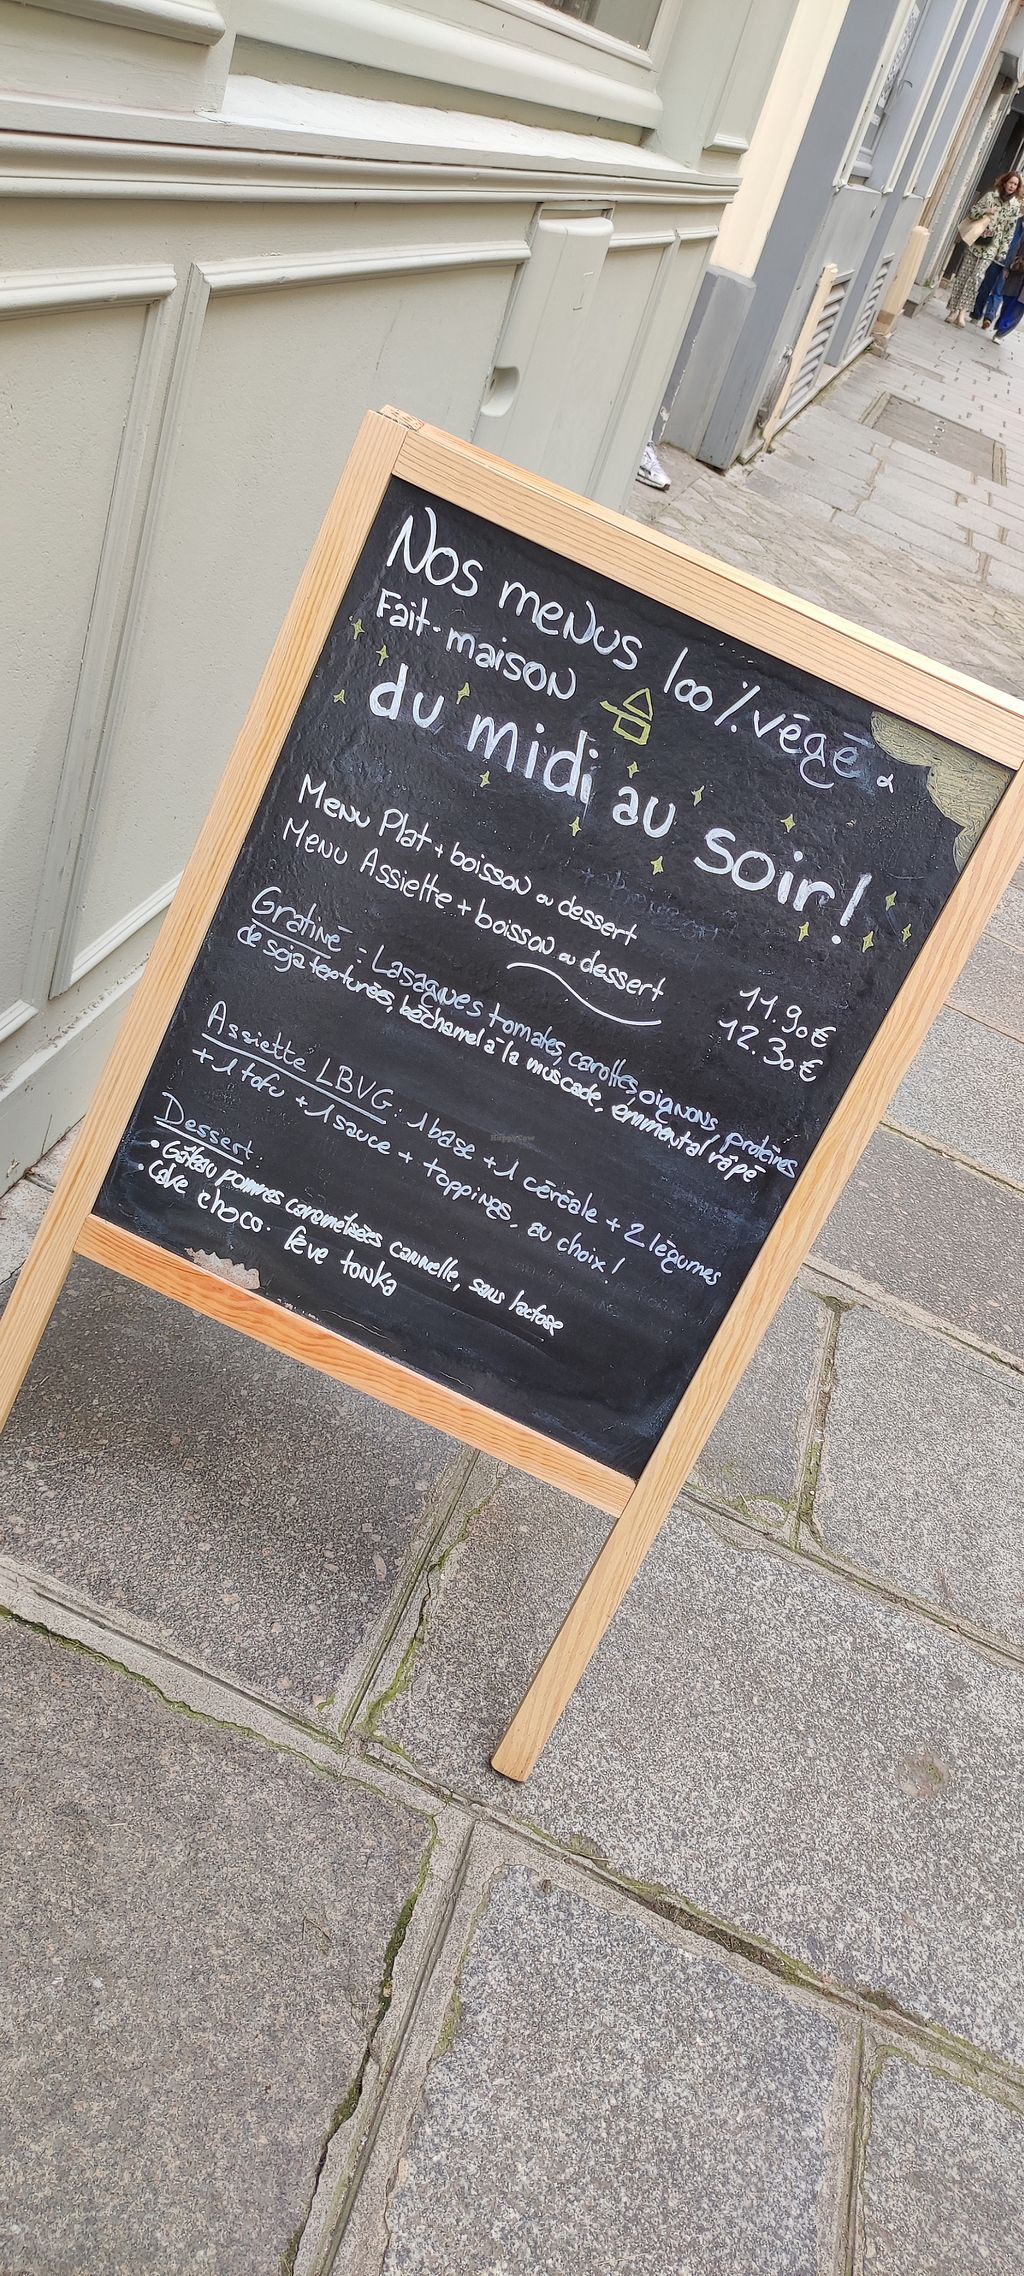 Nos menus 100% végé &
Fait-maison
du midi au soir!
Menu Plat + boisson ou dessert 11.90€
Menu Assiette + boisson ou dessert 12.30€
Gratiné : Lasagnes tomates, carottes, oignons protéines
de soja texturées, béchamel à la muscade, emmental râpé
Assiette LBVG : 1 base + 1 céréale + 2 légumes
+ 1 tofu + 1 sauce + toppings, au choix!
Dessert:
• Gâteau pommes caramélisées cannelle, sans lactose
• Cake choco. fève tonka
HappyCow